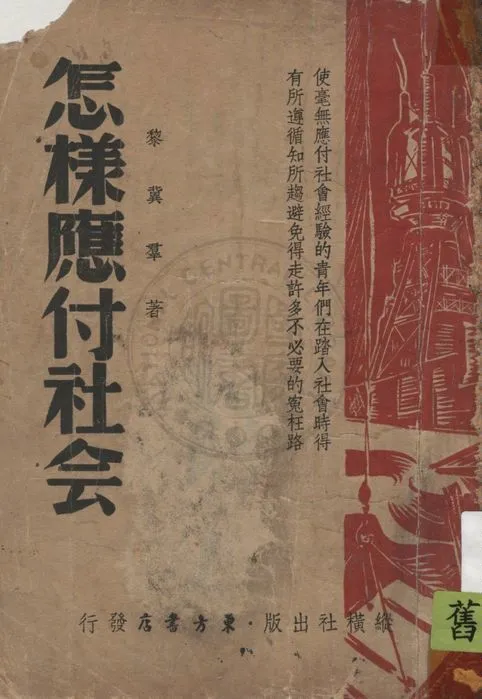 使毫無應付社會經驗的青年們在踏入社會時得
有所遵循知所趨避免得走許多不必要的冤枉路
黎冀羣著
怎樣應付社会
縱橫社出版·東方書店發行
舊